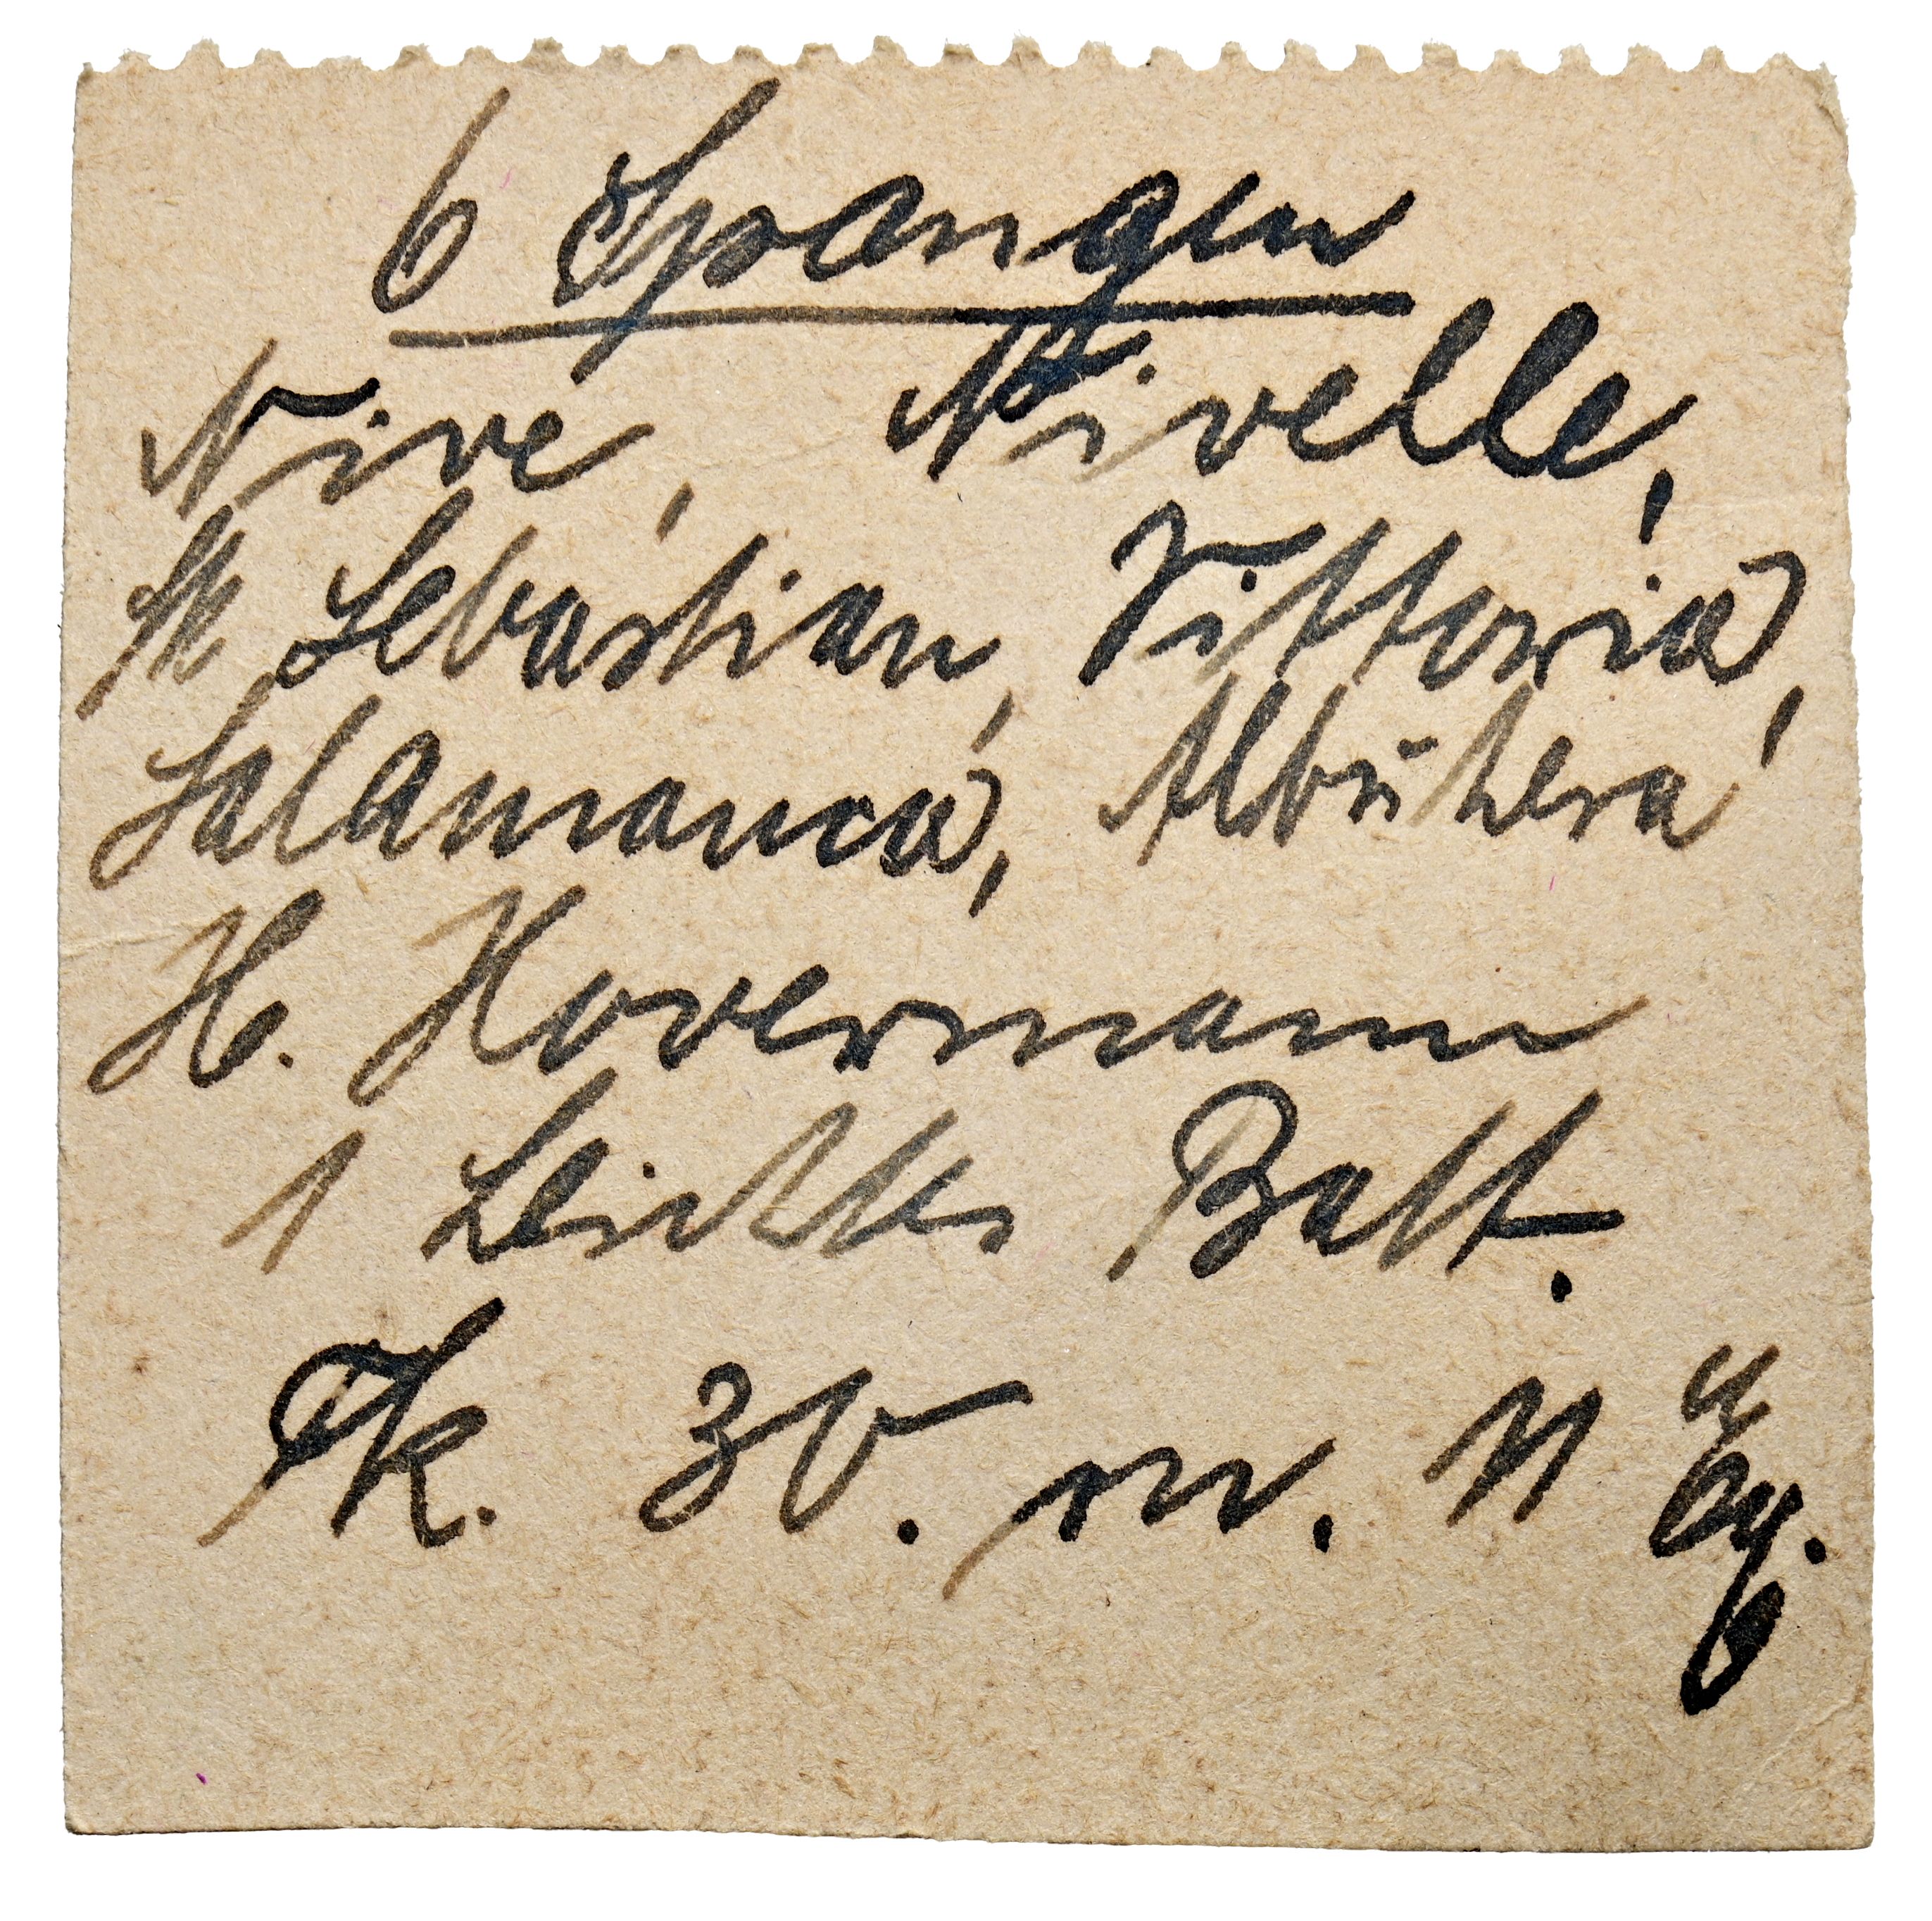 6 Spangen
Nive, Nivelle,
St Sebastian, Vittoria,
Salamanca, Albuhera
H. Hovermann
1 Leichtes Batt.
Tk. 30. 11